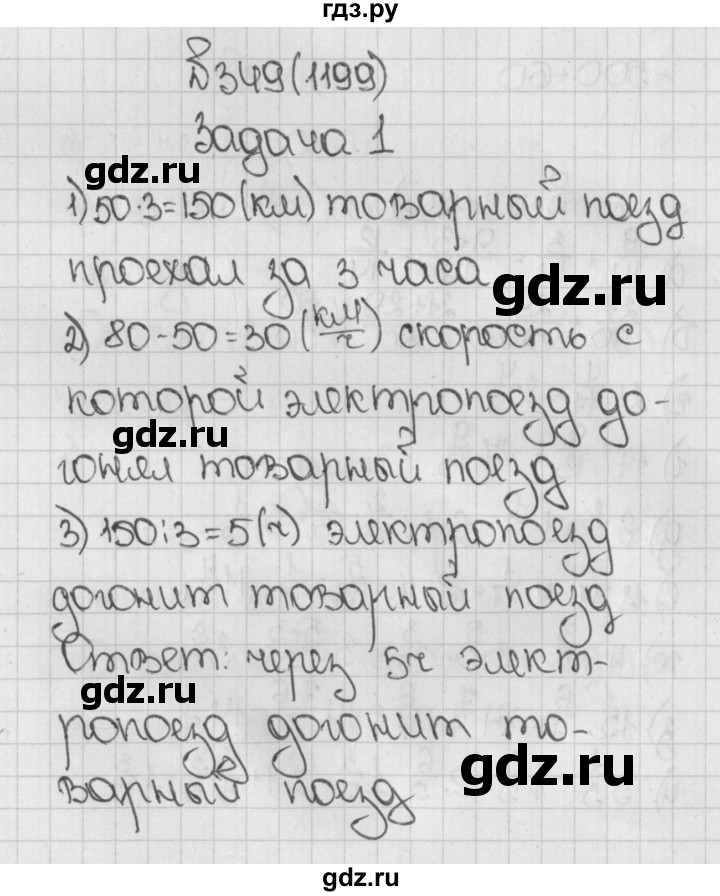 гдз.ру
№349(1199)
Задача 1
gdz.ru
1) 50·3=150(км) товарный поезд
проехал за 3 часа
gdz.ru
2) 80-50=30(км/ч) скорость с
которой электропоезд до-
gdz.ru
гонял товарный поезд
3) 150:3=5(ч) электропоезд
догонит товарный поезд
Ответ: через 5ч элект-
gdz.ru
ропоезд догонит то-
gdz.ru
варный поезд
gdz.ru